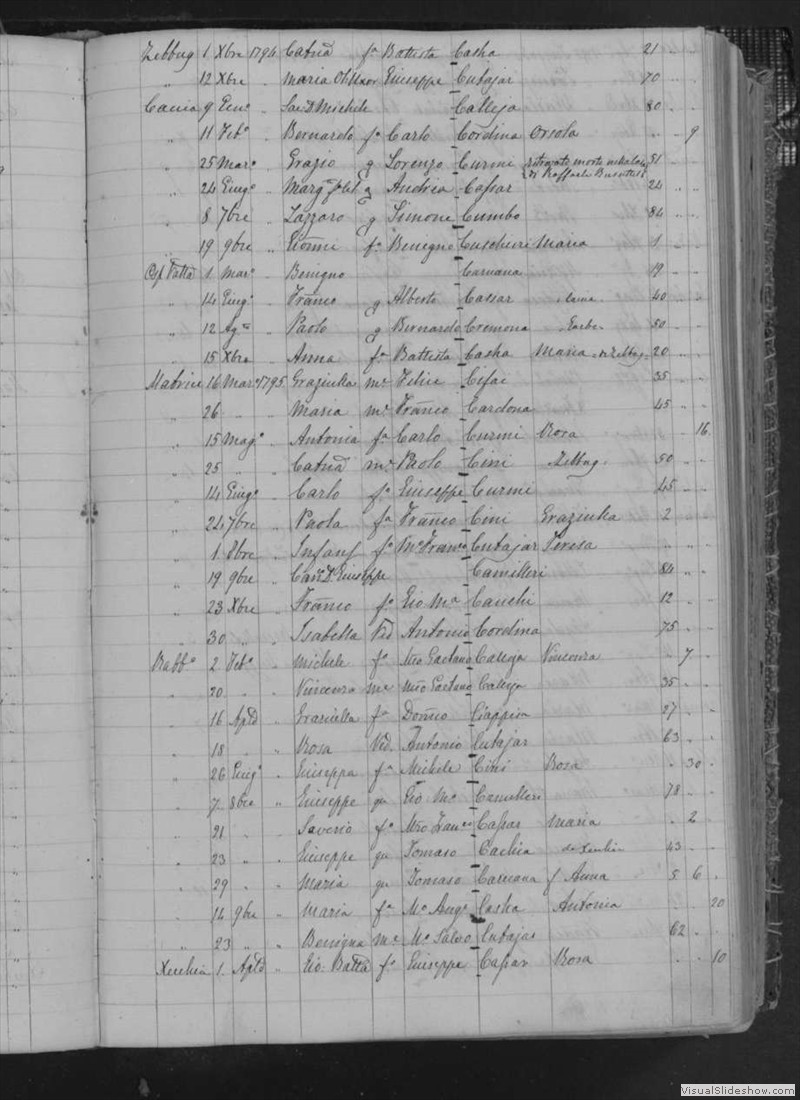 Zebbug 1 Xbre 1794 Catnā fa Battista Casha 21
" 12 Xbre " Maria Ob Uxor Giuseppe Cutajar 70
Cauia 9 Gen° " Sac. D. Michele Calleja 80
" 11 Feb° " Bernardo f° Carlo Cordina Orsola 9
" 25 Mar° " Grazio q Lorenzo Curmi ritrovato morto 51
di Raffaele
" 24 Giug° " Marg q Andria Cassar 24
" 8 7bre " Lazzaro q Simone Cumbo 84
" 19 9bre " Gioanni f° Benigno Cuschieri Maria 1
1 Mar° " Benigno Caruana 19
" 14 Giug° " Franco q Alberto Cassar 40
" 12 Ag° " Paolo q Bernardo Cremona 50
" 15 Xbre " Anna fa Battista Casha Maria Zebbug 20
Matrice 16 Mar° 1795 Graziulla me Felice Cifai 35
" 26 " " Maria me Franco Cardona 45
" 15 Mag° " Antonia fa Carlo Curmi Rosa 16
" 25 " " Catnā me Paolo Cini Zebbug 50
" 14 Giug° " Carlo f° Giuseppe Curmi 45
" 24 7bre " Paola fa Franco Cini Graziulla 2
" 1 8bre " Infans f° M° Franco Cutajar Teresa
" 19 9bre " Can° D. Giuseppe Camilleri 84
" 23 Xbre " Franco f° Gio Ma Cauchi 12
" 30 " " Isabella Vid Antonio Cordina 75
Rabb° 2 Feb° " Michele f° Nro Gaetano Calleja Vincenza 7
" 20 " " Vincenza me Nro Gaetano Calleja 35
" 16 Aple " Graziella fa Domco Ciappira 27
" 18 " " Rosa Vid. Antonio Cutajar 63
" 26 Giug° " Giuseppa fa Michele Cini Rosa 30
" 7 8bre " Giuseppe qu Gio Ma Camilleri 78
" 21 " " Saverio f° Nro Cassar Maria 2
" 23 " " Giuseppe qu Tomaso Cachia de Xeuchia 43
" 29 " " Maria qu Tomaso Caruana f Anna 5 6
" 14 9bre " Maria fa M° Ang° Casha Antonia 20
" 23 " " Benigna me M° Salvo Cutajar 62
Xeuchia 1 Aple " Gio: Batta f° Giuseppe Cassar Rosa 10
VisualSlideshow.com